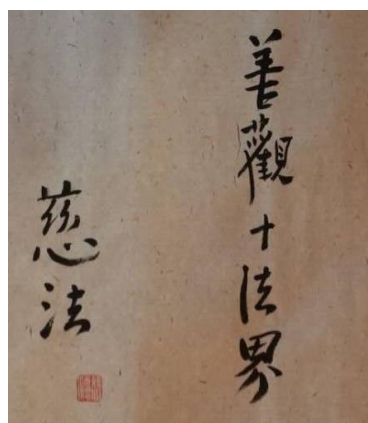 善觀十法界
慈法